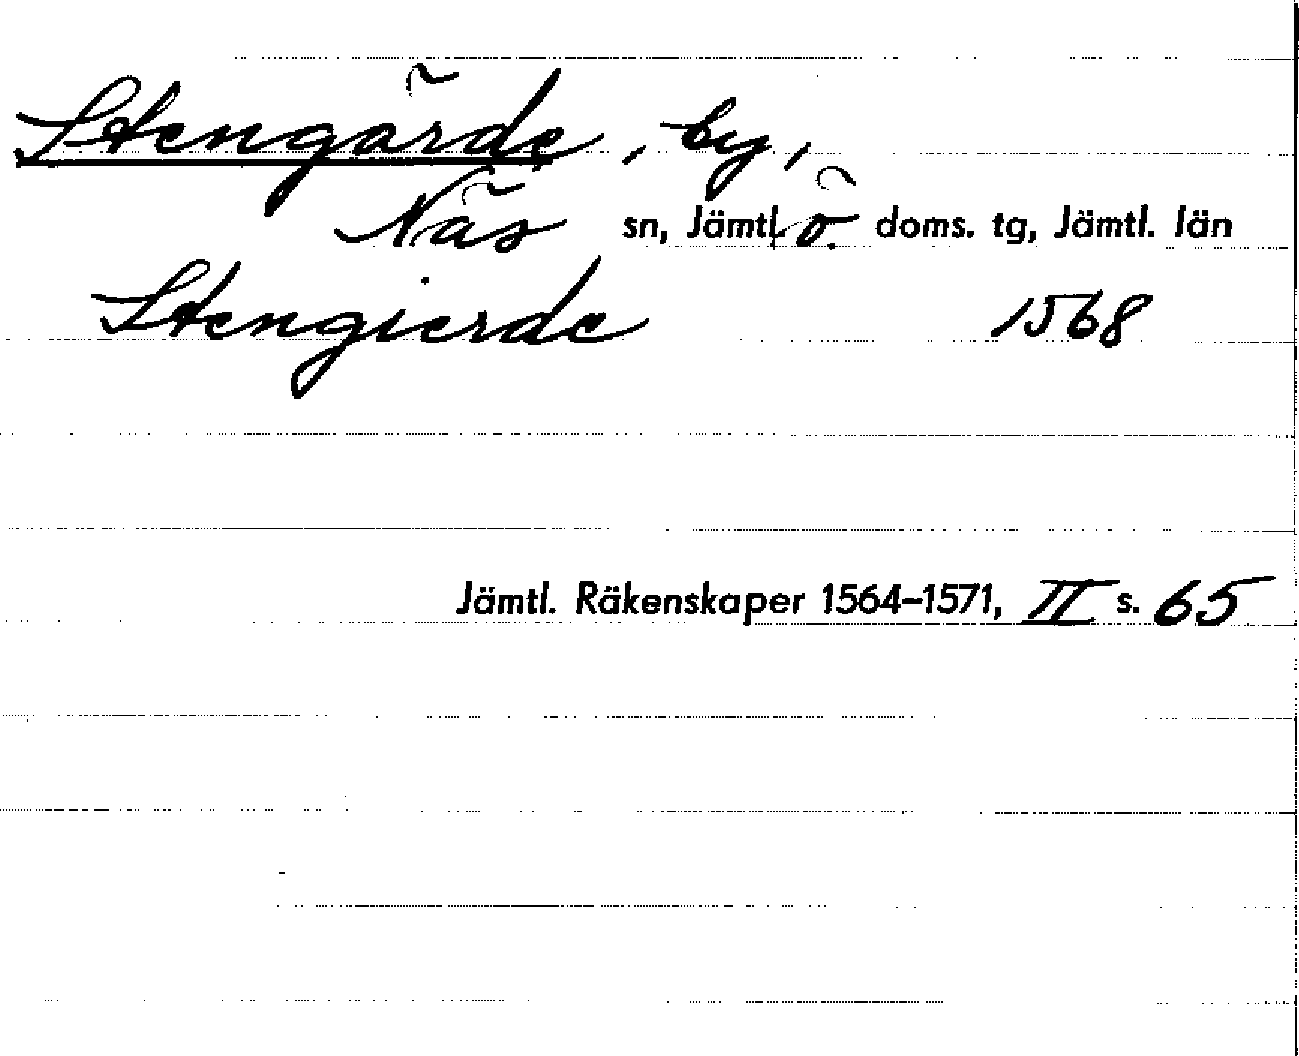 Stengärde, by,
Näs sn, Jämtl. ö. doms. tg, Jämtl. län
Stengierde 1568
Jämtl. Räkenskaper 1564–1571, II s. 65